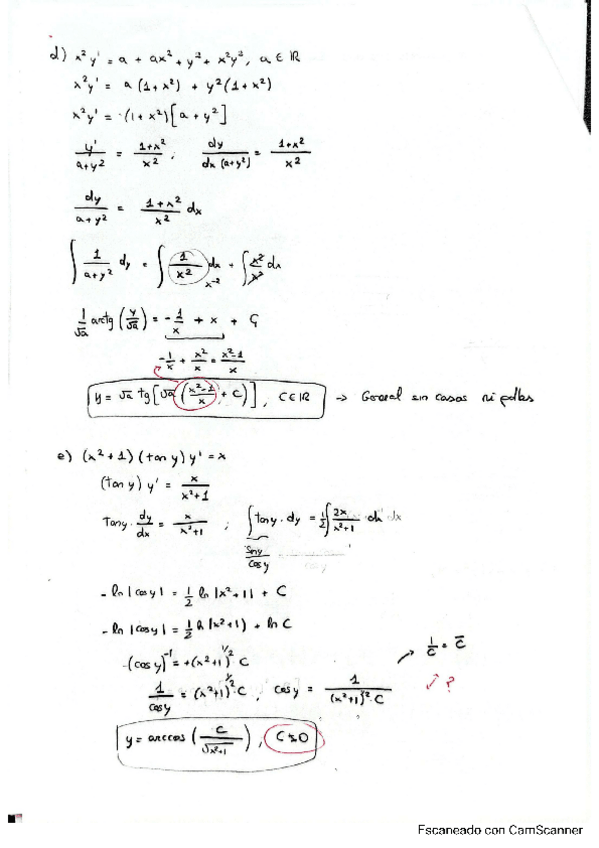 d) x²y' = a + ax² + y² + x²y², a ∈ ℝ
x²y' = a(1+x²) + y²(1+x²)
x²y' = (1+x²)[a+y²]
y'/(a+y²) = (1+x²)/x² ; dy/(dx(a+y²)) = (1+x²)/x²
dy/(a+y²) = (1+x²)/x² dx
∫ 1/(a+y²) dy = ∫ 1/x² dx + ∫ x²/x² dx
x⁻²
1/√a arctg(y/√a) = -1/x + x + C
-1/x + x²/x = (x²-1)/x
y = √a tg[√a((x²-1)/x + C)], C∈ℝ → General sin casos ni
e) (x²+1)(tan y) y' = x
(tan y) y' = x/(x²+1)
Tan y · dy/dx = x/(x²+1) ; ∫ tan y · dy = 1/2 ∫ 2x/(x²+1) · dx
Sin y/Cos y
-ln|cos y| = 1/2 ln|x²+1| + C
-ln|cos y| = 1/2 ln|x²+1| + ln C
(cos y)⁻¹ = +(x²+1)^(1/2) · C
1/C = C̄
1/cos y = (x²+1)^(1/2) · C, cos y = 1/((x²+1)^(1/2) · C)
✓ ?
y = arccos(C/√(x²+1)), C≠0
Escaneado con CamScanner